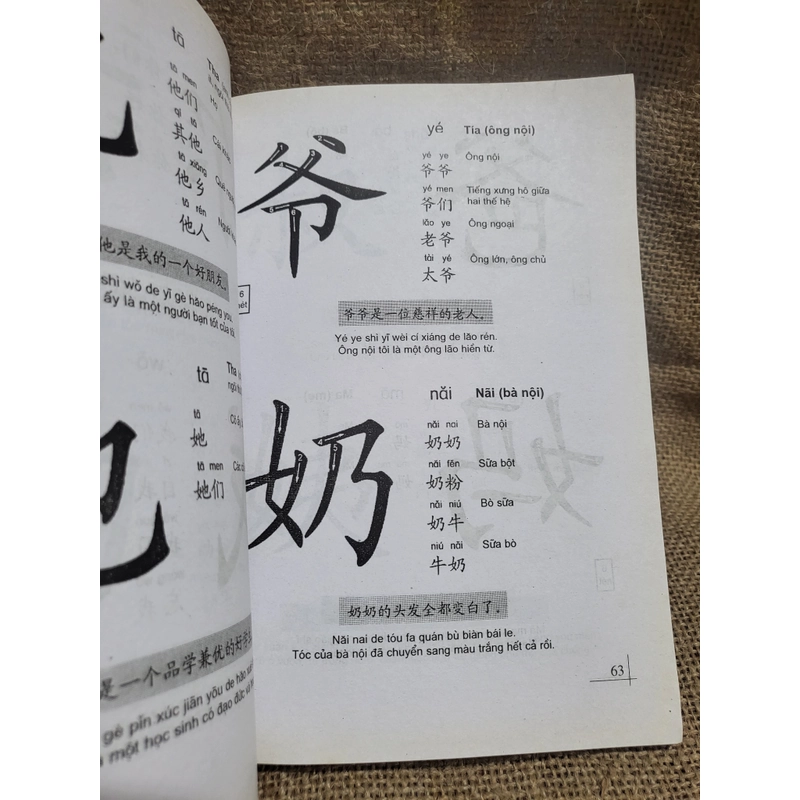 tā Tha
tā men
他们 Họ
qí tā
其他
tā xiāng
他乡 Quê
tā rén
他人 Người
他是我的一个好朋友。
shì wǒ de yī gè hǎo péng you.
ấy là một người bạn tốt của tôi
tā Tha
tā
她
tā men
她们 Các
也
是一个品学兼优的好学
gè pǐn xúc jiān yōu de hǎo
một học sinh có đạo đức
爷
6
nét
yé Tia (ông nội)
yé ye Ông nội
爷爷
yé men Tiếng xưng hô giữa
爷们 hai thế hệ
lāo ye Ông ngoại
老爷
tài yé Ông lớn, ông chủ
太爷
爷爷是一位慈祥的老人。
Yé ye shi yī wèi cí xiáng de lāo rén.
Ông nội tôi là một ông lão hiền từ.
奶
nǎi Nãi (bà nội)
nǎi nai Bà nội
奶奶
nǎi fěn Sữa bột
奶粉
nǎi niú Bò sữa
奶牛
niú nǎi Sữa bò
牛奶
奶奶的头发全都变白了。
Nãi nai de tóu fa quán bù biàn bái le.
Tóc của bà nội đã chuyển sang màu trắng hết cả rồi.
63